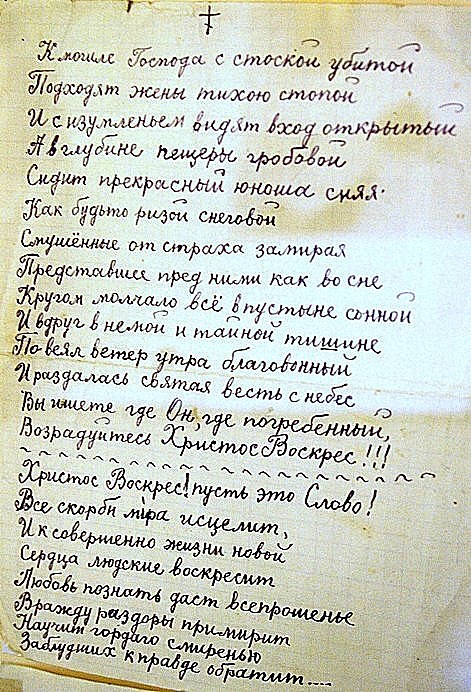 К могиле Господа с стоской убитой
Подходят жены тихою стопой
И с изумленьем видят вход открытый
А в глубине пещеры гробовой
Сидит прекрасный юноша сияя.
Как будьто ризой снеговой
Смушённые от страха замирая
Представшее пред ними как во сне
Кругом молчало всё в пустыне сонной
И вдруг в немой и тайной тишине
Повеял ветер утра благовонный
И раздалась святая весть с небес
Вы ишете где Он, где погребенный,
Возрадуйтесь Христос Воскрес!!!
Христос Воскрес! пусть это Слово!
Все скорби мiра исцелит,
И к совершенно жизни новой
Сердца людские воскресит
Любовь познать даст всепрошенье
Вражду раздоры примирит
Научит гордаго смиренью
Заблудших к правде обратит....